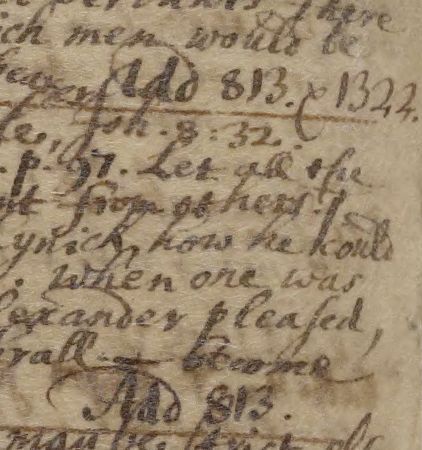 there
ich men would be
Add 813. & 1322.
Joh. 8:32.
p. 97. Let all the
nt from others.
ynick, how he could
. when one was
lexander pleased,
rall become
Add 813.
may be strict